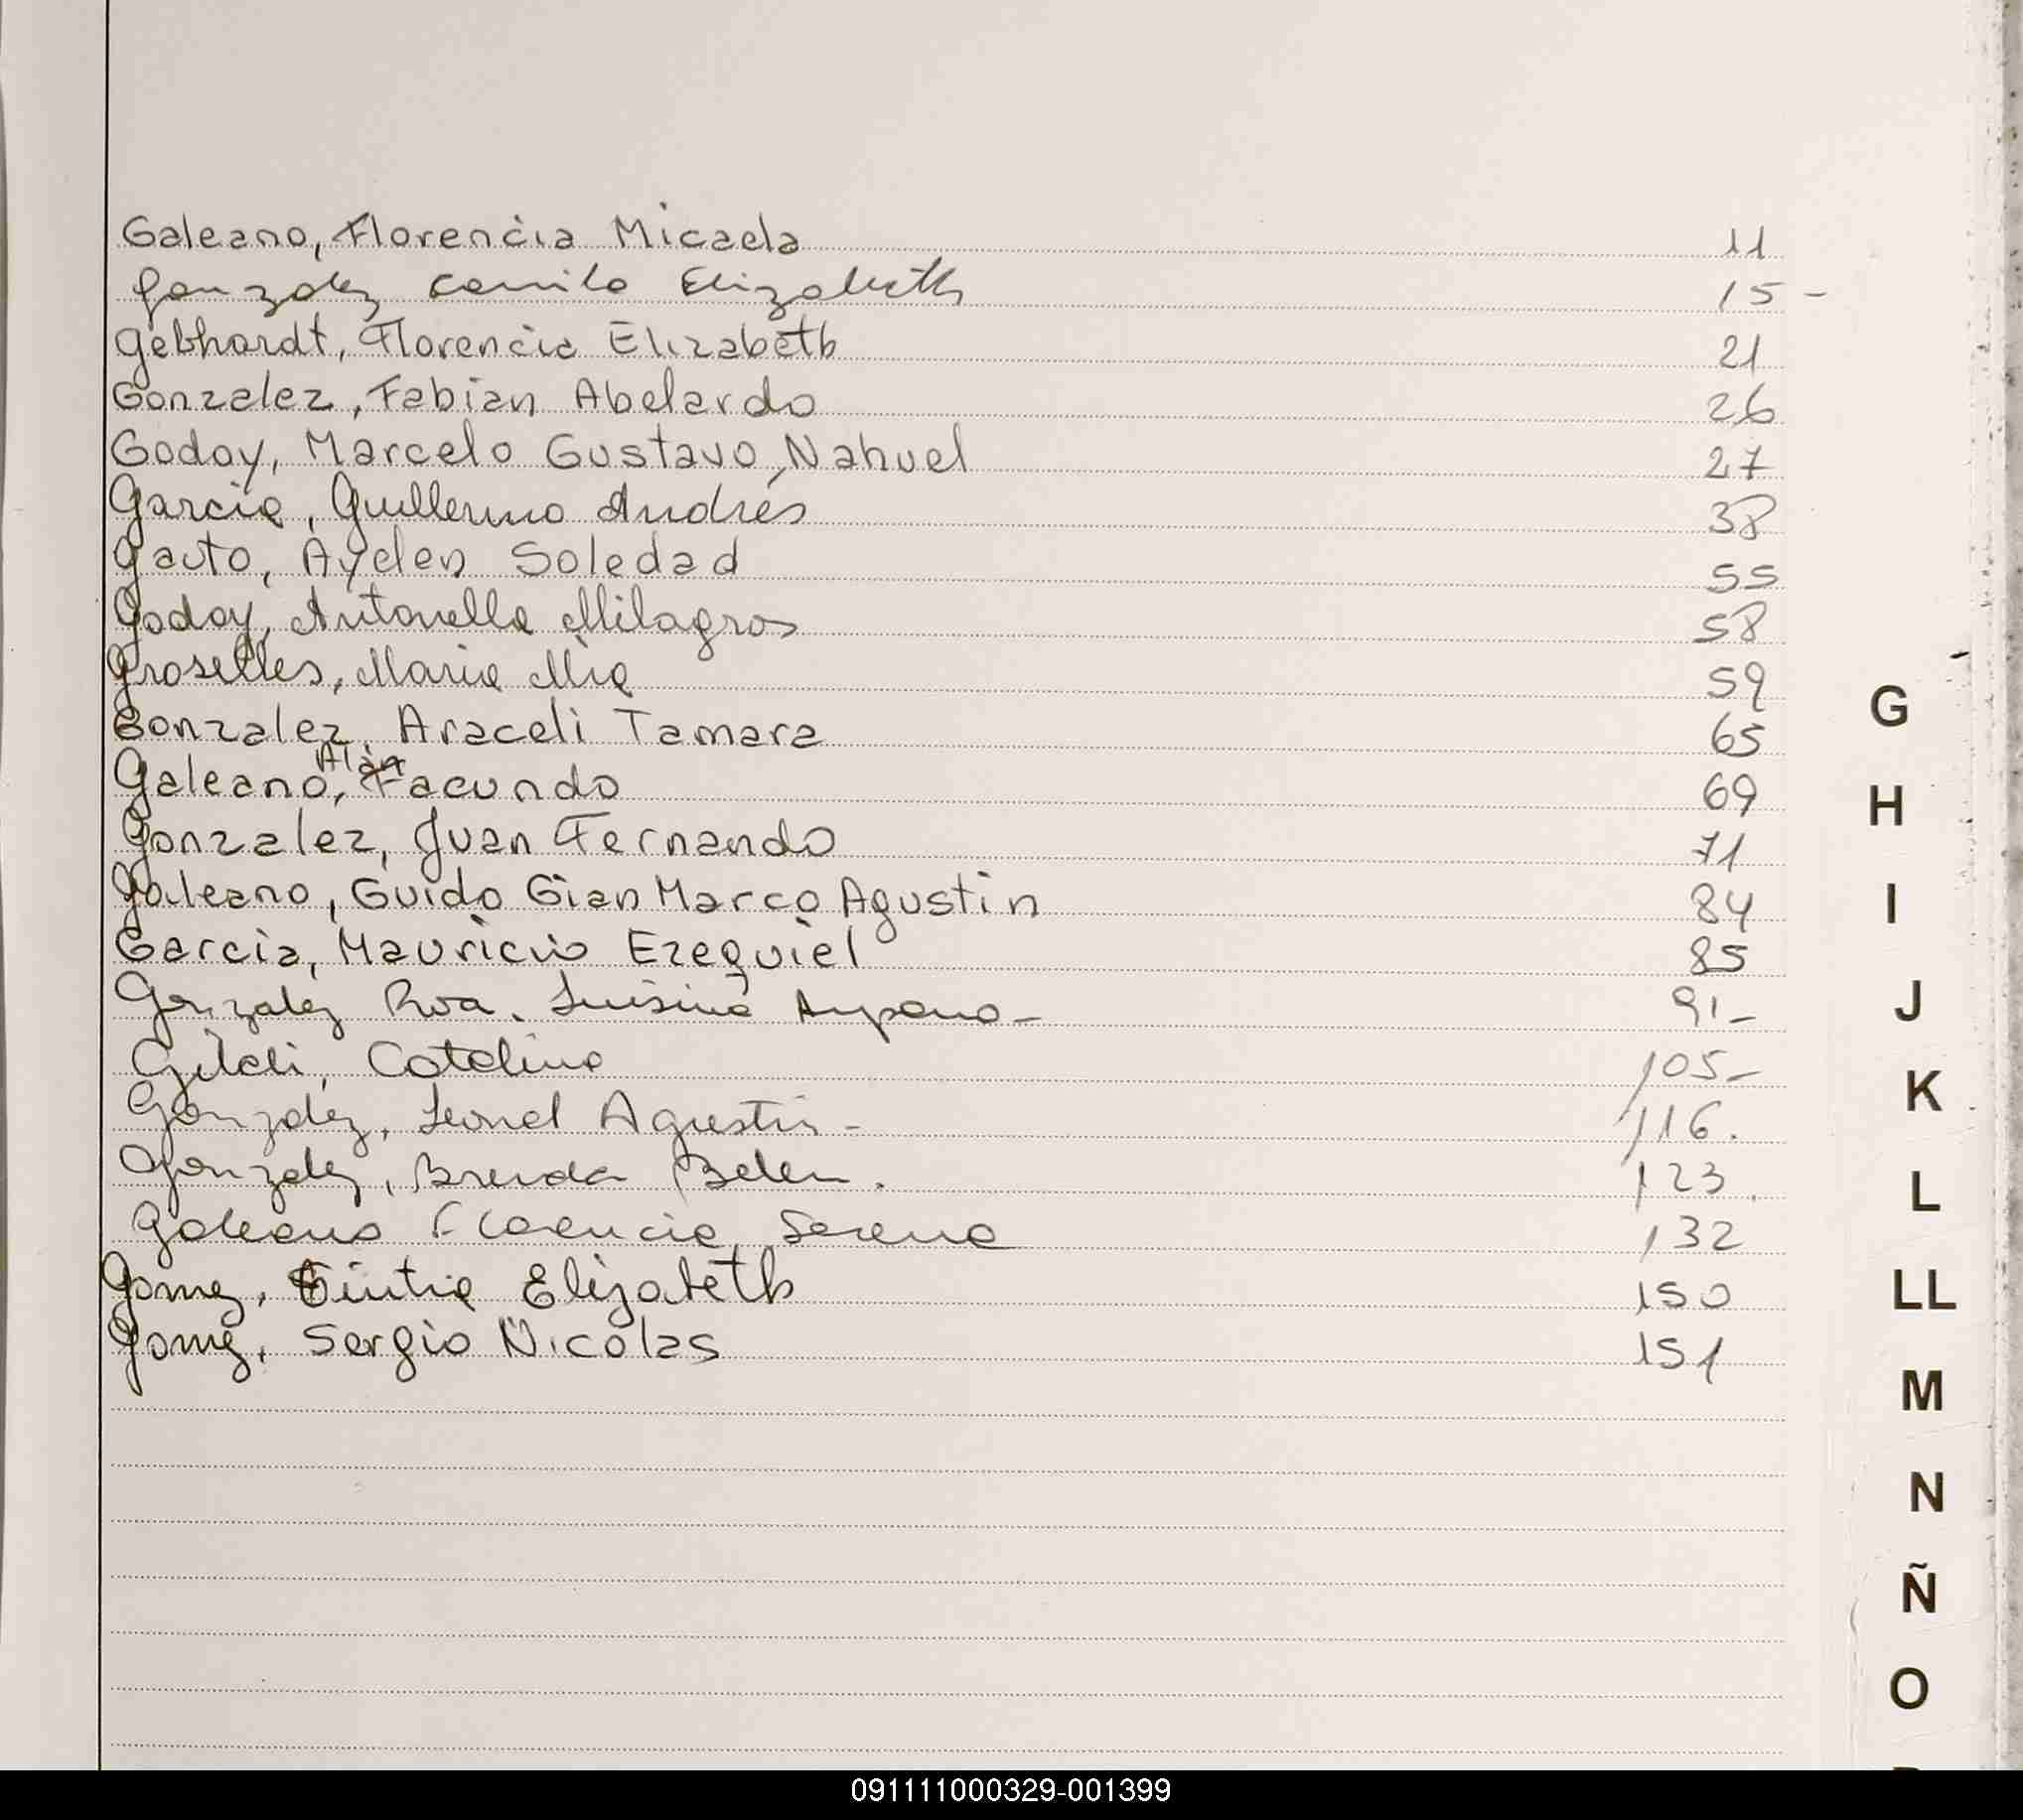 Galeano, Florencia Micaela 11
Gonzalez Camila Elizabeth 15 -
Gebhardt, Florencia Elizabeth 21
Gonzalez, Fabian Abelardo 26
Godoy, Marcelo Gustavo Nahuel 27
Garcia, Guillermo Andrés 38
Gauto, Ayelen Soledad 55
Godoy, Antonella Milagros 58
Groselles, Maria Mia 59
Gonzalez, Araceli Tamara 65
Alan
Galeano, Facundo 69
Gonzalez, Juan Fernando 71
Galeano, Guido Gian Marco Agustin 84
Garcia, Mauricio Ezequiel 85
Gonzalez Roa. Luisina 91-
Gildi, Catalina 105-
Gonzalez, Leonel Agustin - 116.
Gonzalez, Brenda Belen. 123.
Galeano Florencia Serena 132
Gomez, Cintia Elizabeth 150
Gomez, Sergio Nicolas 151
G
H
I
J
K
L
LL
M
N
Ñ
O
091111000329-001399